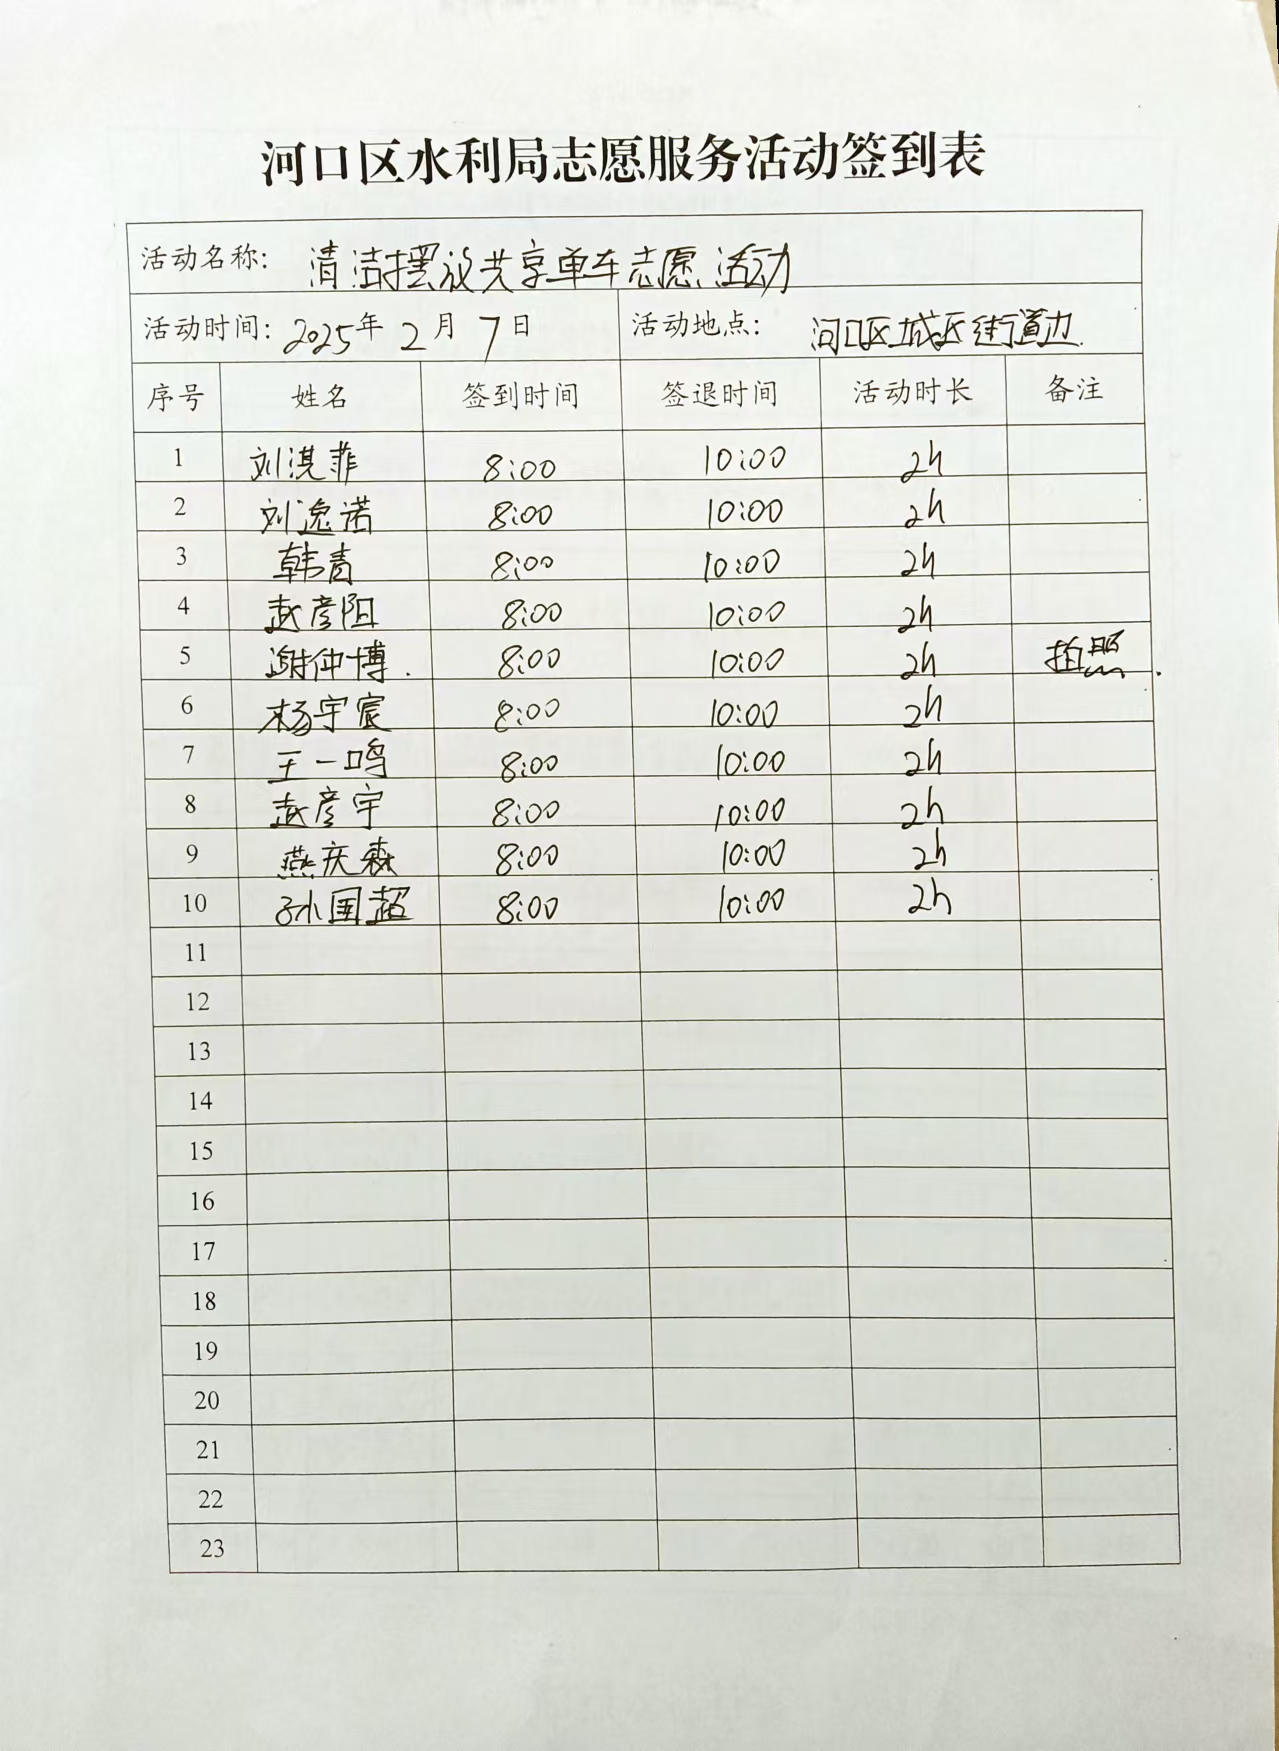 河口区水利局志愿服务活动签到表
活动名称: 清洁摆放共享单车志愿活动
活动时间: 2025年 2月 7日 活动地点: 河口区城区街道边.
序号 姓名 签到时间 签退时间 活动时长 备注
1 刘淇菲 8:00 10:00 2h
2 刘逸诺 8:00 10:00 2h
3 韩青 8:00 10:00 2h
4 赵彦阳 8:00 10:00 2h
5 谢仲博. 8:00 10:00 2h 拍照.
6 杨宇宸 8:00 10:00 2h
7 王一鸣 8:00 10:00 2h
8 赵彦宇 8:00 10:00 2h
9 燕庆森 8:00 10:00 2h
10 孙国超 8:00 10:00 2h
11
12
13
14
15
16
17
18
19
20
21
22
23